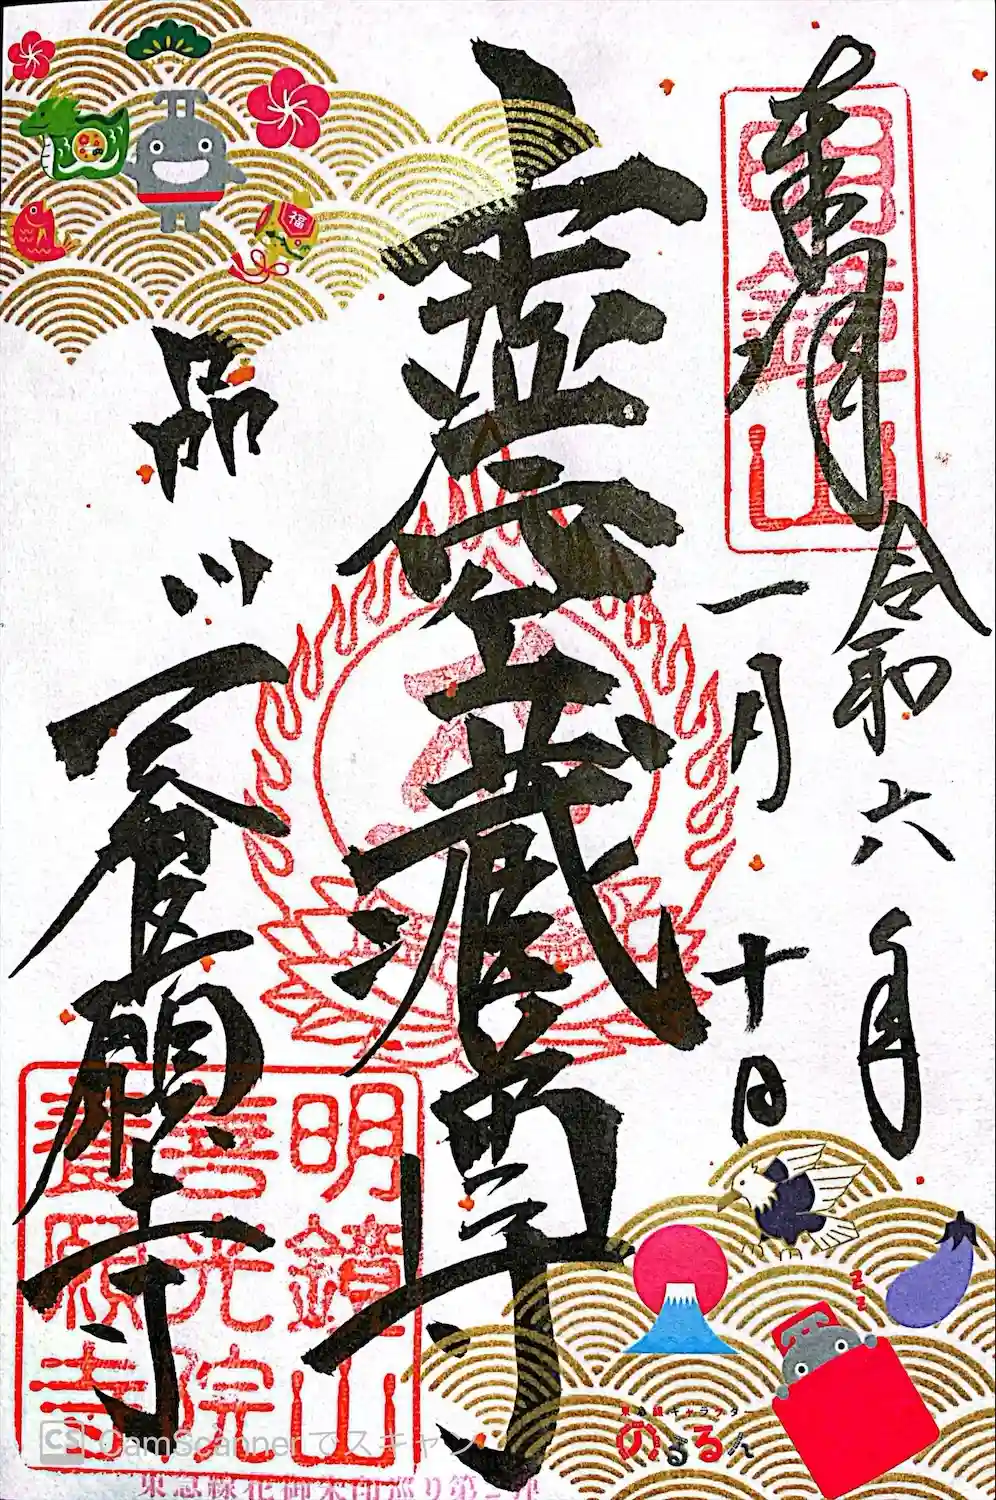 奉拝
明鏡山
令和六年
一月十日
虚空蔵尊
品川
養願寺
明鏡山
善光院
養願寺
福
zzz
東急線キャラクター
のるるん
東急線花御朱印巡り第二弾
CS CamScannerでスキャン